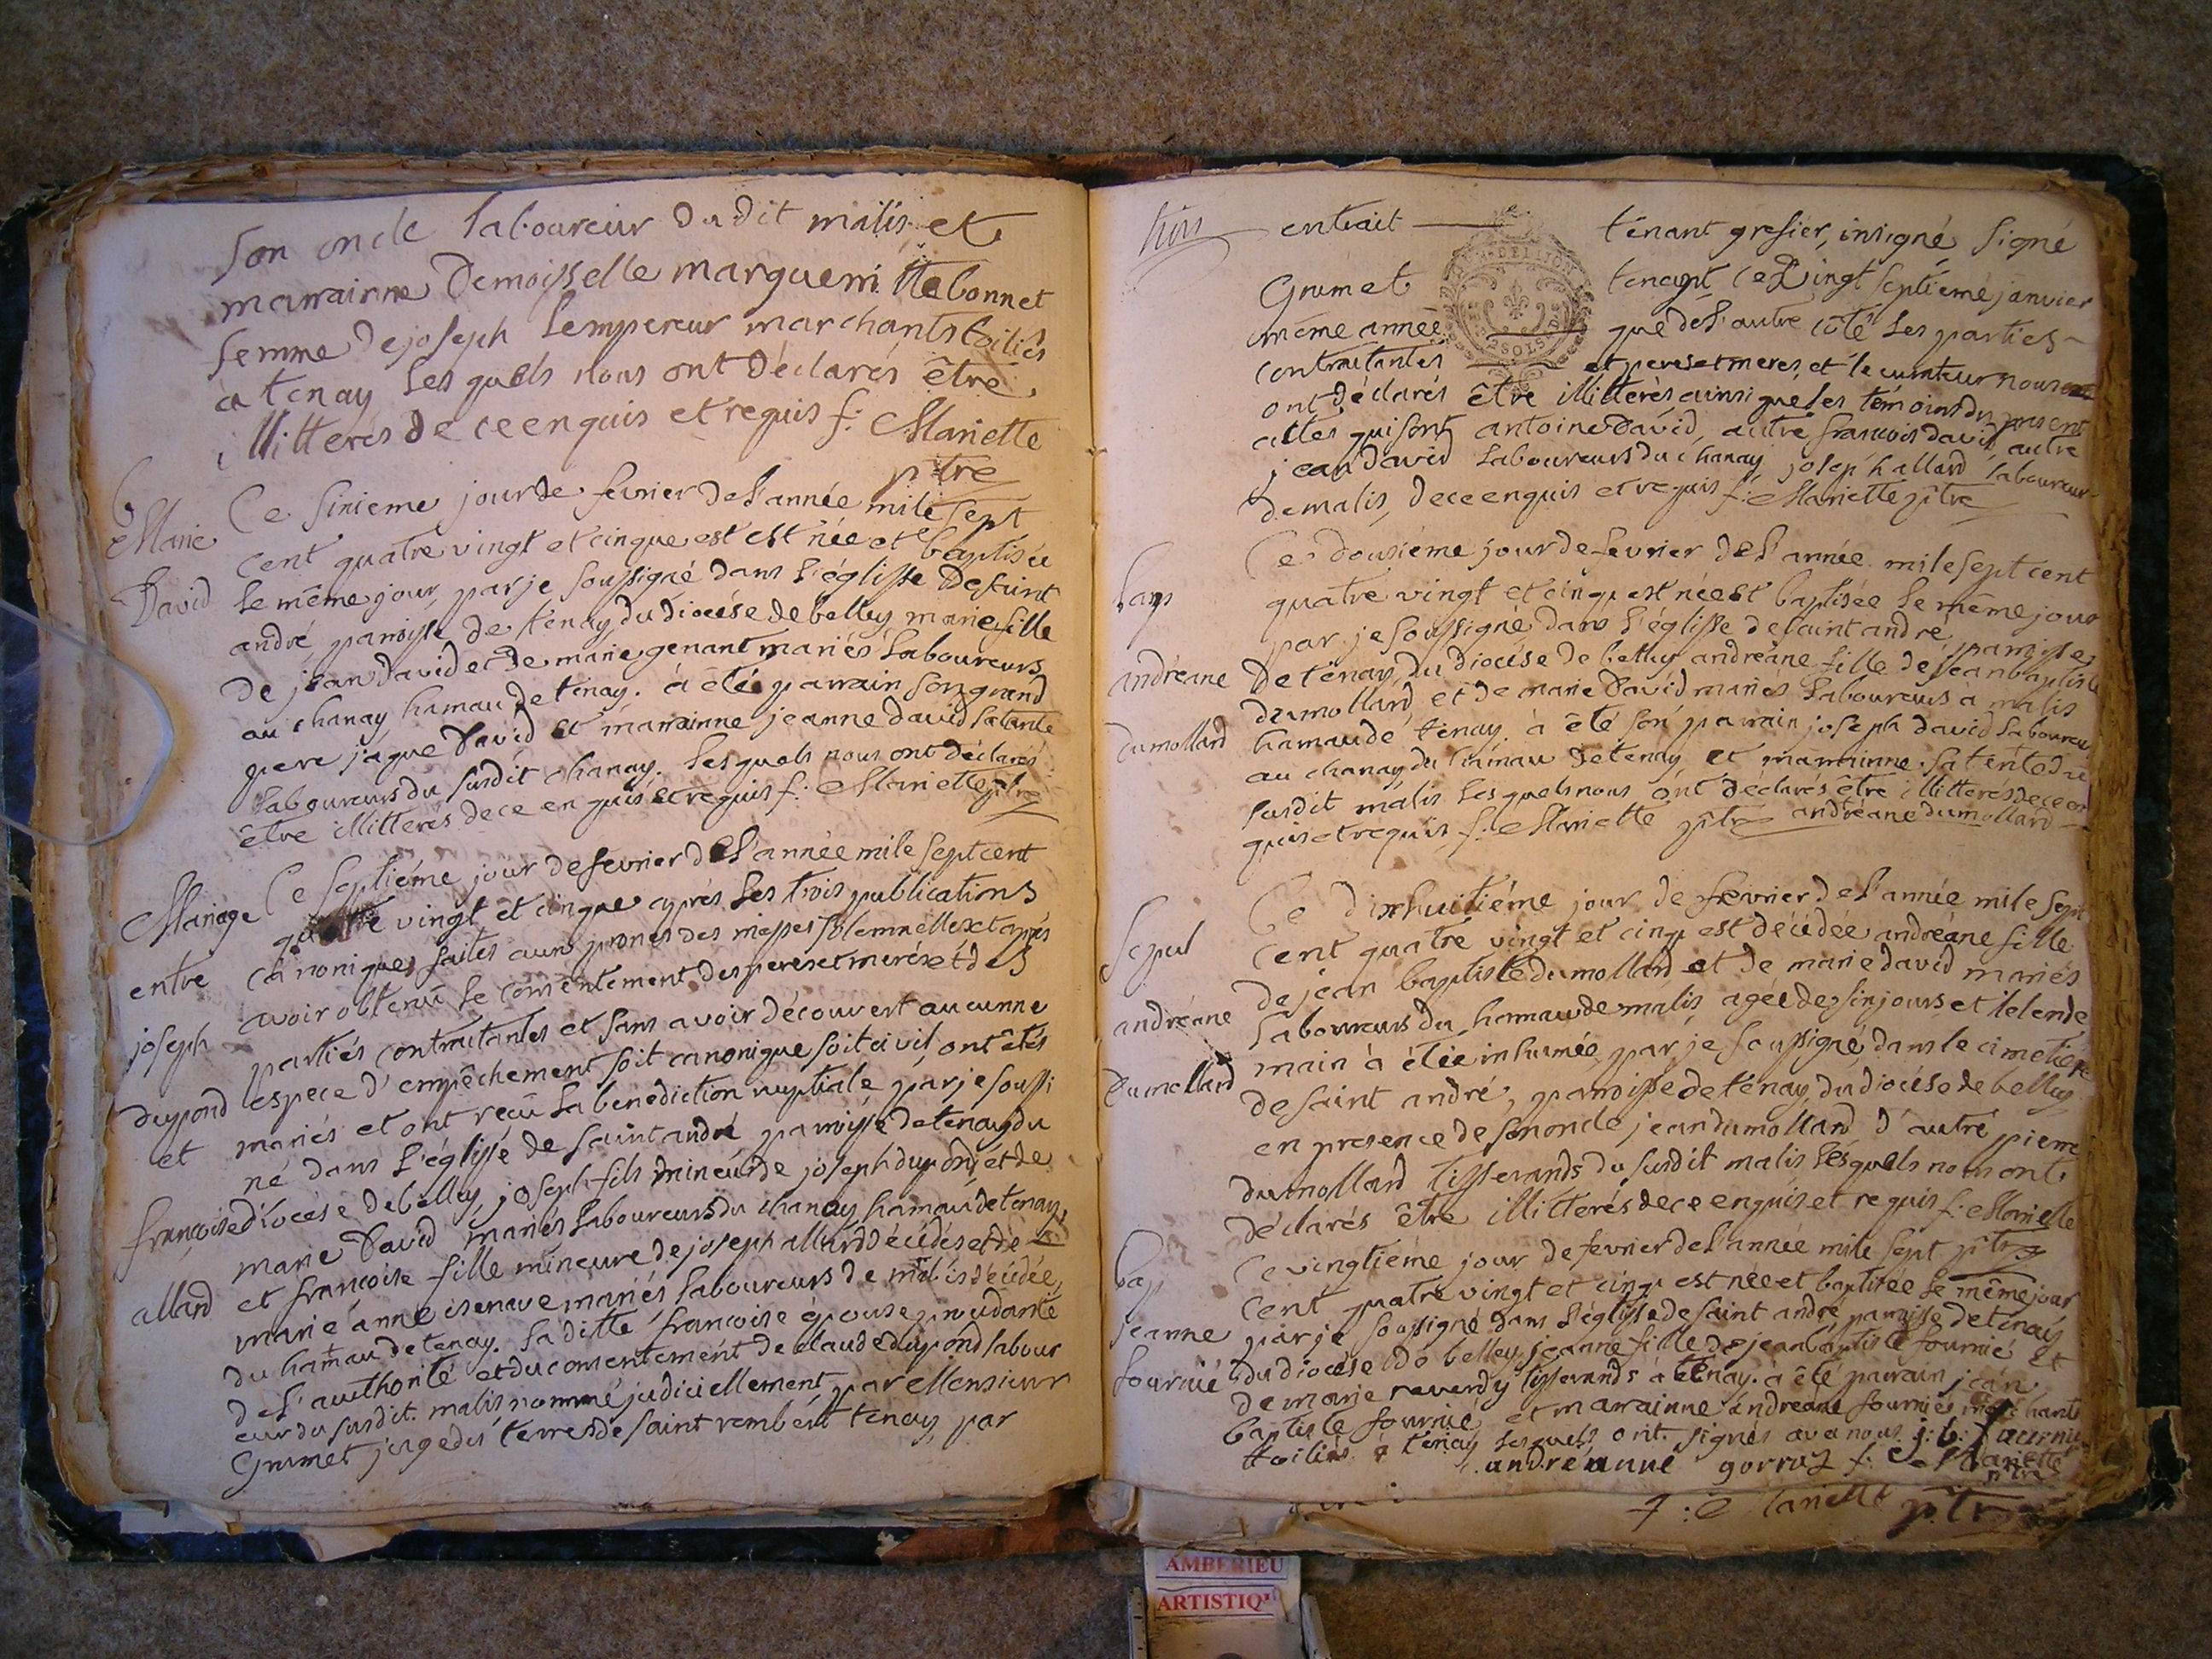 son oncle laboureur du dit malis et
marrainne Demoisselle marguerritte bonnet
femme de joseph Lempereur marchants toiliés
à tenay Les quels nous ont déclarés être
illitterés de ce enquis et requis f: Mariette
ptre
6
Marie
David
Ce sixieme jour de fevrier de l'année mile sept
cent quatre vingt et cinque est est née et baptisée
le même jour, par je soussigné dans l'églisse de saint
andré, paroisse de tenay du diocése de belley marie fille
de jean david et de marie genant mariés laboureurs
au chanay hamau de tenay. à été parrain son grand
pere jaque David et marrainne jeanne david sa tante
laboureurs du susdit chanay. lesquels nous ont déclarés
être illitterés de ce en quis et requis f: Mariette ptre
Mariage
entre
joseph
dupond
et
françoise
allard
Ce septiéme jour de fevrier de l'année mile sept cent
quattre vingt et cinque aprés les trois publications
canoniques faites aux prones des messes solemnelles et aprés
avoir obtenu le consentement des peres et meres et des
partiés contractantes et sans avoir découvert aucunne
espece d'empêchement soit canonique soit civil, ont étés
mariés et ont reçu la benediction nuptiale par je soussi
né dans l'églisse de saint andré paroisse de tenay du
diocése de belley, joseph fils mineur de joseph dupond et de
marie David mariés laboureurs du chanay hamau de tenay,
et françoise fille mineure de joseph allard décédés et de
marie anne isenave mariés laboureurs de malis décédée,
du hamau de tenay. la ditte françoise épouse procédante
de l'authorité et du consentement de claude dupond labour
eur du susdit malis nommé judiciellement par Monsieur
Grumet juge des terres de saint rembért tenay, par
entrait tenant grefier, insigné signé
Grumet tenant ce vingt septiéme janvier
même année que de l'autre côté les parties
contractantes et peres et meres et le curateur nous
ont déclarés être illitterés ainsi que les témoins du present
actes qui sont antoine David, autre françois david autre
jean david laboureurs du chanay joseph allard laboureur
de malis, de ce enquis et requis f: Mariette ptre
bap
andréane
dumollard
Ce dousiéme jour de fevrier de l'année mile sept cent
quatre vingt et cinq est née et baptisée le même jour
par je soussigné dans l'églisse de saint andré paroisse
de tenay, du diocése de belley andréane fille de jean baptiste
dumollard et de marie David mariés laboureurs a malis
hamau de tenay. à été son parrain joseph david laboureur
au chanay du hamau de tenay et marrainne sa tente du
susdit malis les quels nous ont déclarés être illitterés de ce en
quis et requis f: Mariette ptre andréane dumollard
sepul
andréane
Dumollard
Ce dixhuitiéme jour de fevrier de l'année mile sept
cent quatre vingt et cinq est décédée andréane fille
de jean baptiste dumollard et de marie david mariés
laboureurs du hamau de malis agée de six jours et le lende
main à étée inhumée par je soussigné dans le cimetiére
de saint andré, paroisse de tenay, du diocése de belley
en presence de son oncle jean dumollard d'autre pierre
dumollard tisserands du susdit malis lésquels nous ont
déclarés être illitterés de ce enquis et requis f: Mariette
ptre
bap
jeanne
fournié
Ce vingtiéme jour de fevrier de l'année mile sept
cent quatre vingt et cinq est née et baptisée le même jour
par je soussigné dans l'églisse de saint andré, paroisse de tenay
du diocése de belley, jeanne fille de jean baptiste fournié et
de marie reverdy tisserands à tenay. à été parrain jean
baptiste fournié et marrainne andréane fourniés marchants
toiliés à tenay lesquels ont signés avec nous j: b: fournié
andréanne gorraz f: Mariette
ptre
f: Mariette ptre
AMBERIEU
ARTISTIQU